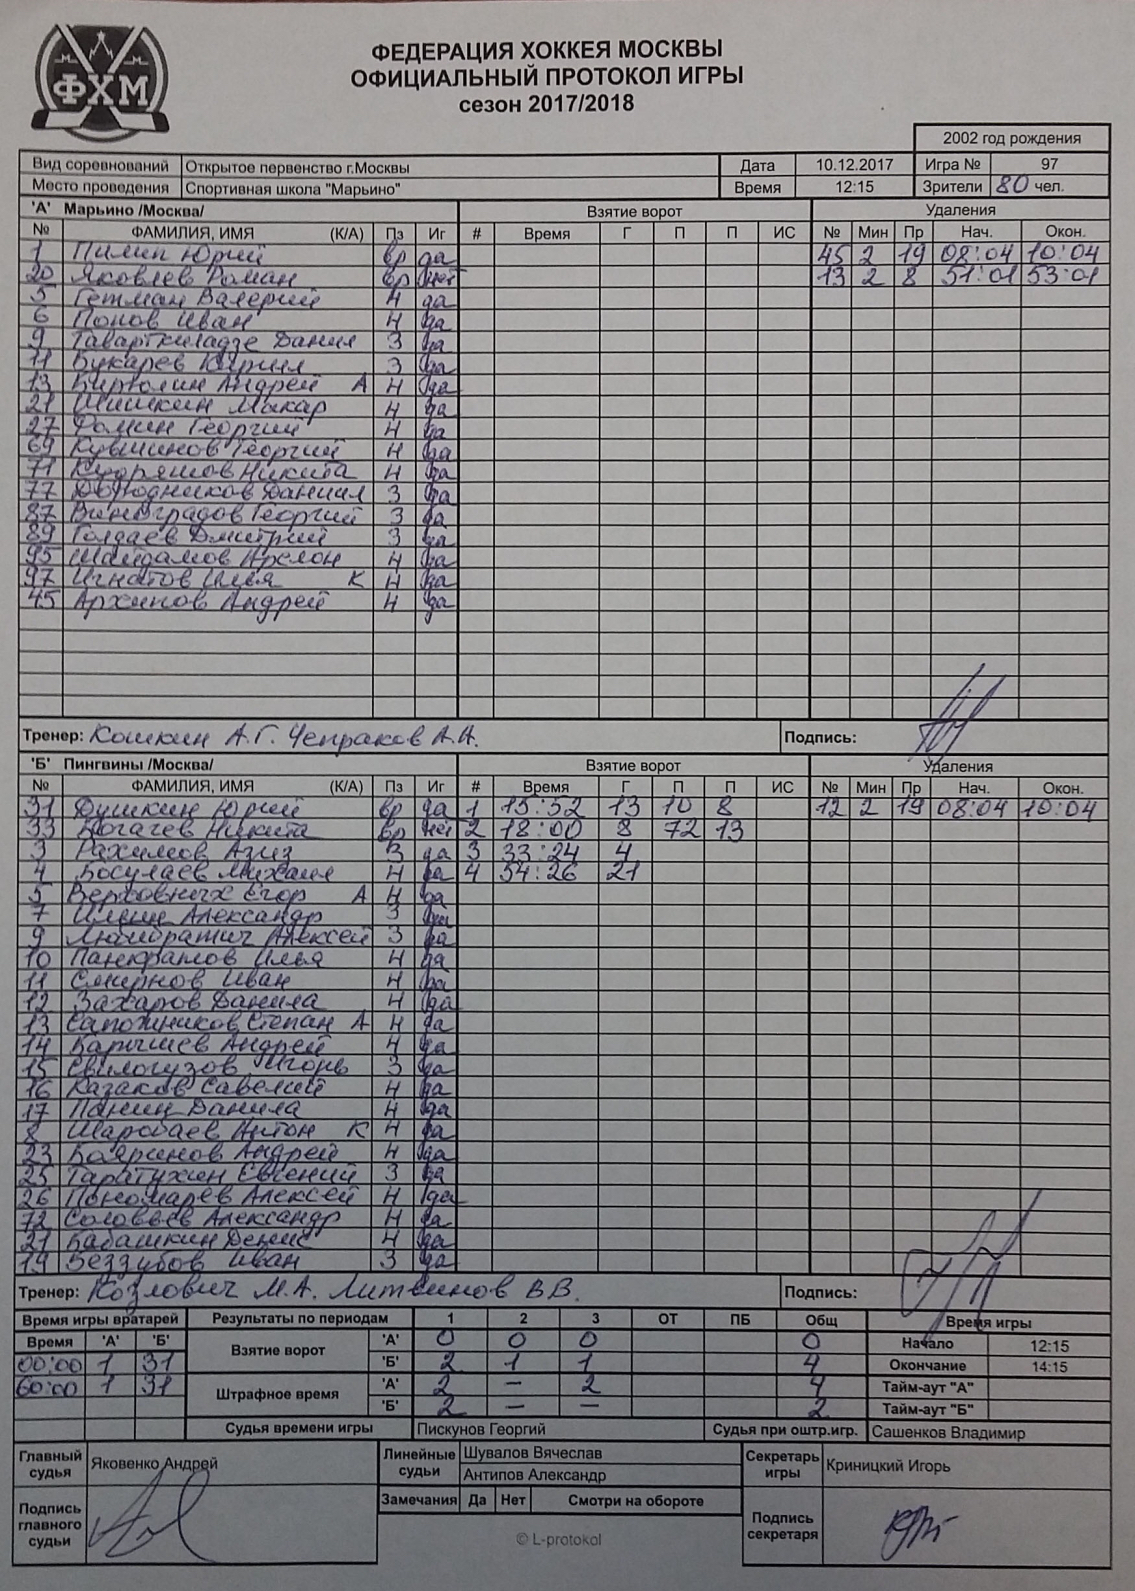 ФХМ
ФЕДЕРАЦИЯ ХОККЕЯ МОСКВЫ
ОФИЦИАЛЬНЫЙ ПРОТОКОЛ ИГРЫ
сезон 2017/2018
2002 год рождения
Вид соревнований Открытое первенство г.Москвы Дата 10.12.2017 Игра № 97
Место проведения Спортивная школа "Марьино" Время 12:15 Зрители 80 чел.
'А' Марьино /Москва/ Взятие ворот Удаления
№ ФАМИЛИЯ, ИМЯ (К/А) Пз Иг # Время Г П П ИС № Мин Пр Нач. Окон.
1 Пилип Юрий вр да 45 2 19 08:04 10:04
20 Яковлев Роман вр нет 13 2 8 51:01 53:01
5 Гетман Валерий Н да
6 Попов Иван Н да
9 Таварткиладзе Данил З да
11 Букарев Кирилл З да
13 Кирюлин Андрей А Н да
21 Шишкин Макар Н да
27 Фомин Георгий Н да
69 Кувшинов Георгий Н да
71 Кудряшов Никита Н да
77 Даниил З да
87 Виноградов Георгий З да
89 Голдаев Дмитрий З да
95 Шайдамов Арслон Н да
97 Игнатов Илья К Н да
45 Архипов Андрей Н да
Тренер: Кошкин А.Г. Чепраков А.А. Подпись:
'Б' Пингвины /Москва/ Взятие ворот Удаления
№ ФАМИЛИЯ, ИМЯ (К/А) Пз Иг # Время Г П П ИС № Мин Пр Нач. Окон.
31 Душкин Юрий вр да 1 15:52 13 10 8 12 2 19 08:04 10:04
33 Богачев Никита вр нет 2 18:00 8 72 13
3 Рахимов Азиз З да 3 33:24 4
4 Босулаев Михаил Н да 4 54:26 21
5 Верховных Егор А Н да
7 Илюин Александр З да
9 Любибратич Алексей З да
10 Панкратов Илья Н да
11 Смирнов Иван Н да
12 Захаров Данила Н да
13 Сапожников Степан А Н да
14 Барышев Андрей Н да
15 Свилогузов Игорь З да
16 Казаков Савелий Н да
17 Панин Данила Н да
8 Шаробаев Антон К Н да
23 Бояринов Андрей Н да
25 Таратухин Евгений З да
26 Пономарев Алексей Н да
72 Соловьев Александр Н да
21 Бабашкин Денис Н да
19 Беззубов Иван З да
Тренер: Козлович М.А. Литвинов В.В. Подпись:
Время игры вратарей Результаты по периодам 1 2 3 ОТ ПБ Общ Время игры
Время 'А' 'Б' Взятие ворот 'А' 0 0 0 0 Начало 12:15
00:00 1 31 'Б' 2 1 1 4 Окончание 14:15
60:00 1 31 Штрафное время 'А' 2 – 2 4 Тайм-аут "А"
'Б' 2 – – 2 Тайм-аут "Б"
Судья времени игры Пискунов Георгий Судья при оштр.игр. Сашенков Владимир
Главный судья Яковенко Андрей Линейные судьи Шувалов Вячеслав Секретарь игры Криницкий Игорь
Антипов Александр
Подпись главного судьи Замечания Да Нет Смотри на обороте Подпись секретаря
© L-protokol